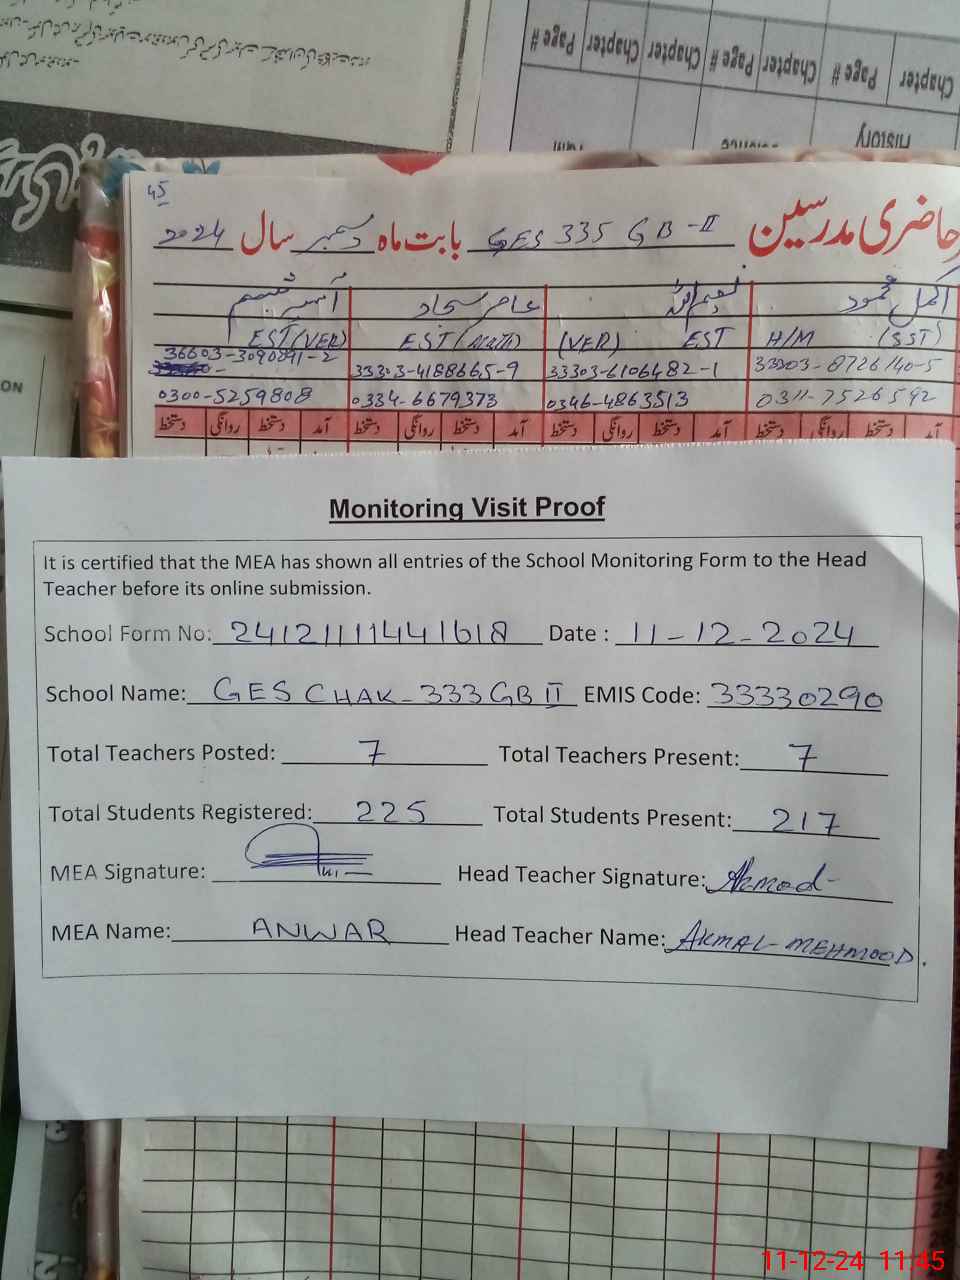 Chapter Page # Chapter Chapter Page # Chapter Page # Chapter
History
45
حاضری مدرسین GES 335 GB-II بابت ماہ دسمبر سال 2024
اکمل محمود نعیم اللہ عامر سجاد آسیہ تبسم
H/M (SST) EST (VER) EST (Math) EST (VER)
33303-8726140-5 33303-6106482-1 33303-4188665-9 36603-3090891-2
0311-7526592 0346-4863513 0334-6679373 0300-5259808
آمد دستخط روانگی دستخط آمد دستخط روانگی دستخط آمد دستخط روانگی دستخط آمد دستخط روانگی دستخط
Monitoring Visit Proof
It is certified that the MEA has shown all entries of the School Monitoring Form to the Head
Teacher before its online submission.
School Form No: 24121111441618 Date : 11-12-2024
School Name: GES CHAK-333GB II EMIS Code: 33330290
Total Teachers Posted: 7 Total Teachers Present: 7
Total Students Registered: 225 Total Students Present: 217
MEA Signature: Head Teacher Signature: Akmad
MEA Name: ANWAR Head Teacher Name: AKMAL-MEHMOOD.
11-12-24 11:45